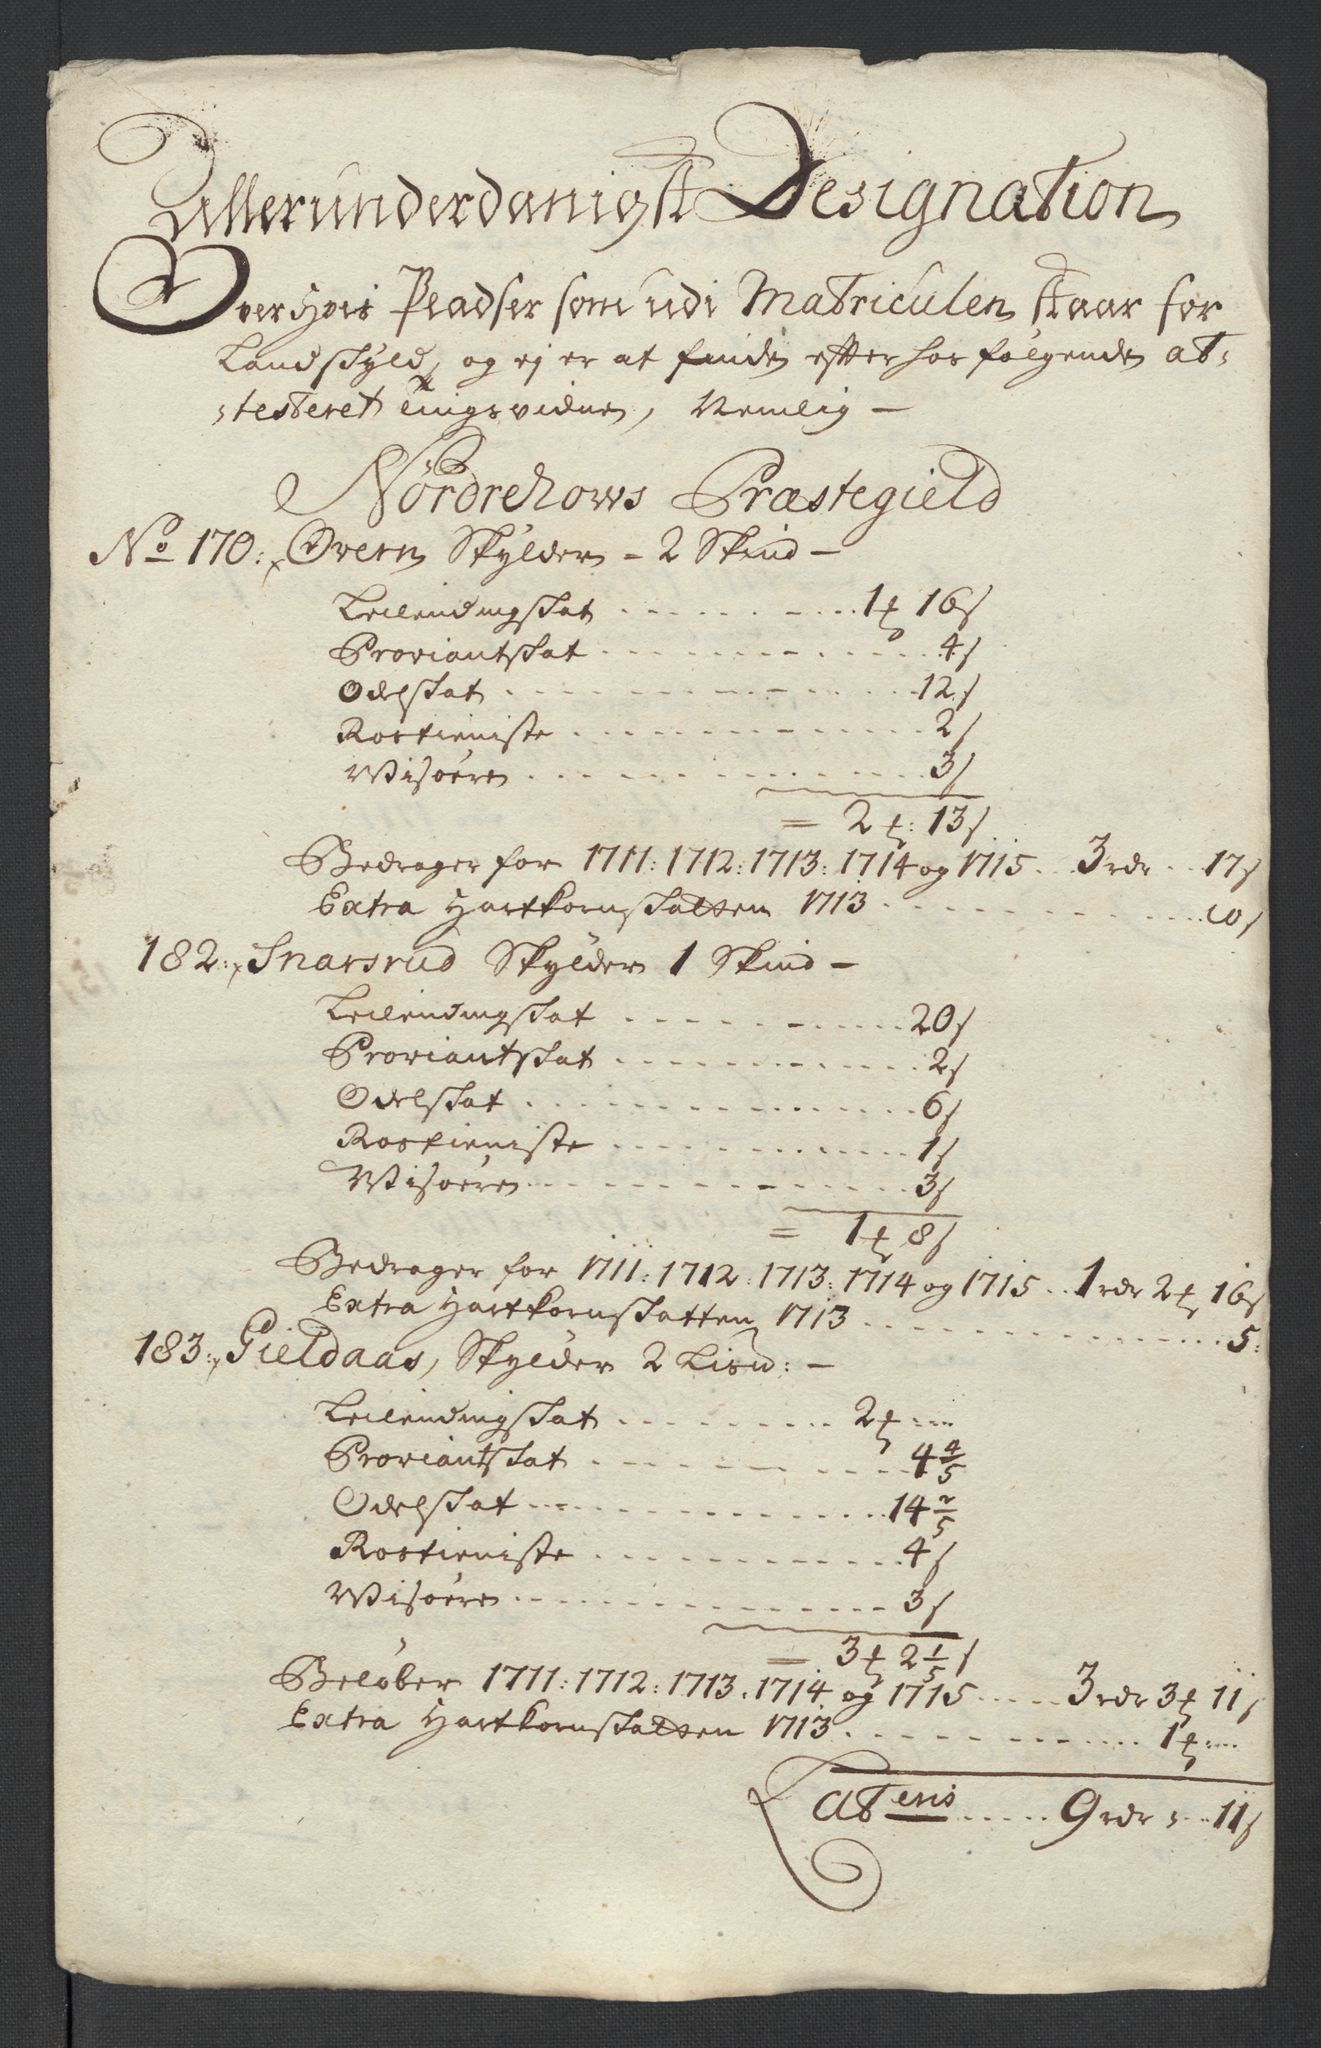 Allerunderdanigst Designation
Over hvis Pladser som udi Matriculen staar for
Landskyld, og ej er at finde efter hos følgende at-
-testeret tingsvidne, Nemlig -
Nordrehows Præstegield
No 170: Øvern Skylder - 2 Skind -
Leilendingskat ..... 1 ƭ 16 s
Proviantskat ..... 4 s
Odelskat ..... 12 s
Rostieniste ..... 2 s
Wisøren ..... 3 s
= 2 ƭ: 13 s
Bedrager for 1711: 1712: 1713: 1714 og 1715 ... 3 rdr ... 17 s
Extra Hartkornskatten 1713 ..... 10 s
182: Snarsrud Skylder 1 Skind -
Leilendingskat ..... 20 s
Proviantskat ..... 2 s
Odelskat ..... 6 s
Rostieniste ..... 1 s
Wisøren ..... 3 s
= 1 ƭ 8 s
Bedrager for 1711: 1712: 1713: 1714 og 1715 .. 1 rdr 2 ƭ 16 s
Extra Hartkornskatten 1713 ..... 5:
183: Gieldaas, Skylder 2 Lisn: -
Leilendingskat ..... 2 ƭ ....
Proviantskat ..... 4 4/5
Odelskat ..... 14 2/5
Rostieniste ..... 4 s
Wisøren ..... 3 s
= 3 ƭ 2 1/5 s
Beløber 1711: 1712: 1713. 1714 og 1715 ..... 3 rdr 3 ƭ 11 s
Extra Hartkornskatten 1713 ..... 1 ƭ ....
Lateris ..... 9 rdr ... 11 s